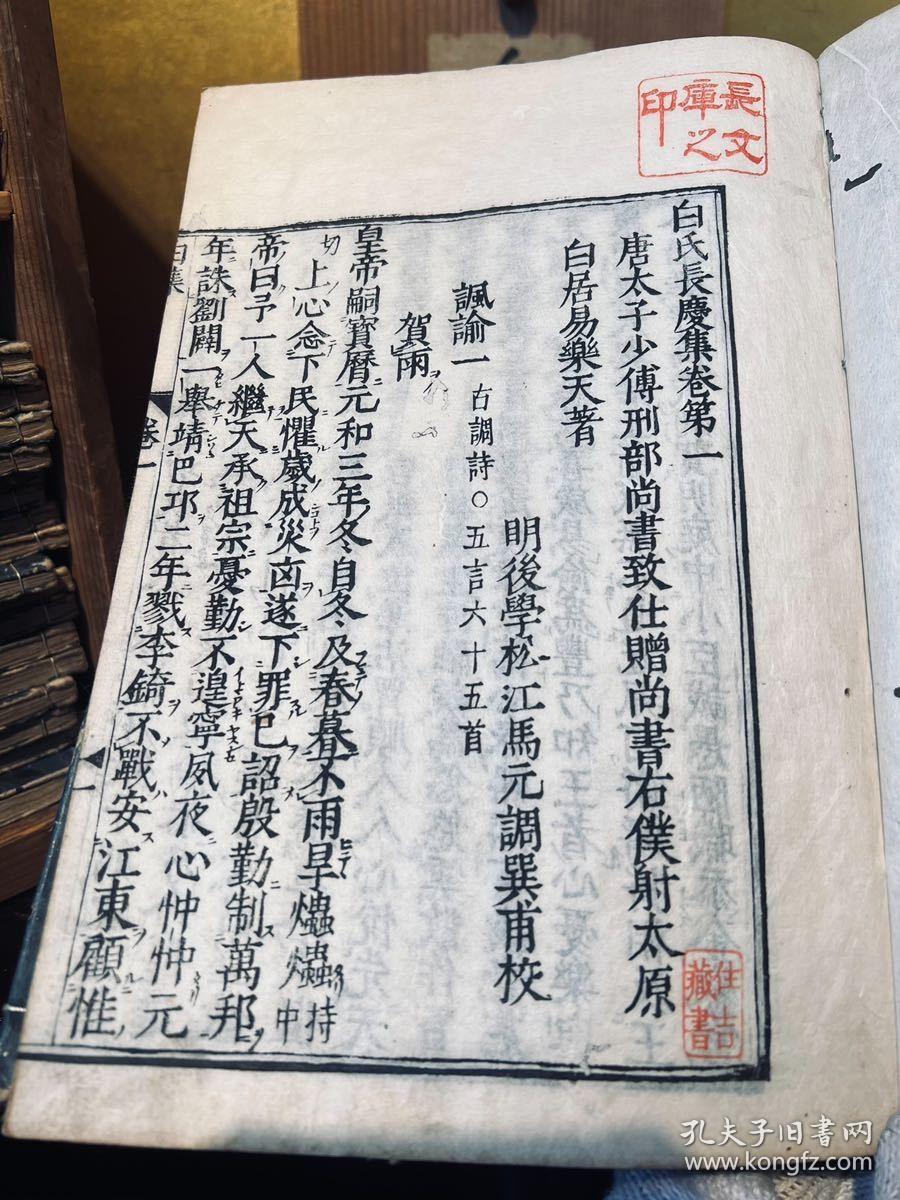 長文
庫之
印
白氏長慶集卷第一
唐太子少傅刑部尚書致仕贈尚書右僕射太原
白居易樂天著
明後學松江馬元調巽甫校
諷諭一 古調詩○五言六十五首
賀雨
皇帝嗣寶曆元和三年冬自冬及春暮不雨旱爞爞持中
切上心念下民懼歲成災凶遂下罪己詔殷勤制萬邦
帝曰予一人繼天承祖宗憂勤不遑寧夙夜心忡忡元
年誅劉闢一舉靖巴邛二年戮李錡不戰安江東顧惟
白集 卷一 一
住吉
藏書
孔夫子旧书网
www.kongfz.com